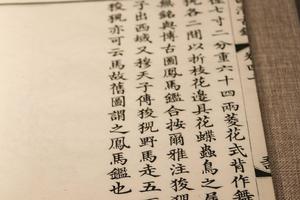 徑七寸二分重六十四兩菱花式背作舞
狻猊各二間以折枝花邊具花蝶蟲鳥之屬
無銘與博古圖鳳馬鑑合按爾雅注狻猊
子出西域又穆天子傳狻猊野馬走五百
狻猊亦可云馬故舊圖謂之鳳馬鑑也